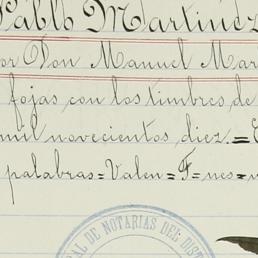 Pablo Martinez
or Don Manuel Mar
fojas con los timbres de
mil novecientos diez.=
palabras=Valen=F=nes=
AL DE NOTARIAS DEL DIST